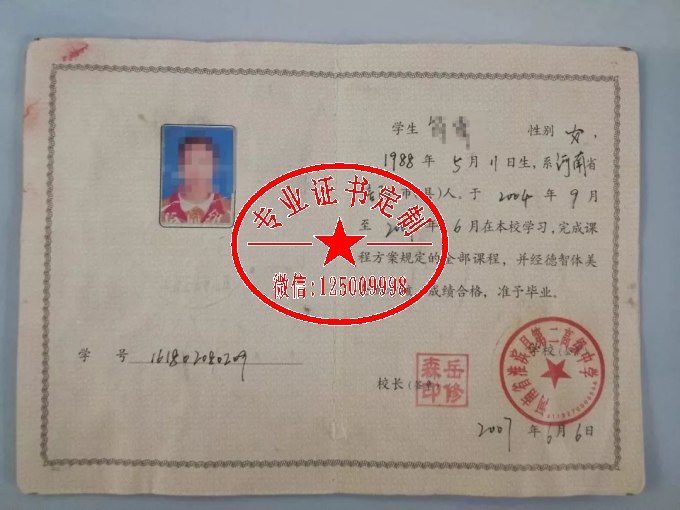 学生 性别 女.
1988 年 5 月 11 日生, 系 河南 省
市(县)人, 于 2004 年 9 月
至 年 6 月在本校学习, 完成课
程方案规定的全部课程, 并经德智体美
成绩合格, 准予毕业。
专业证书定制
微信:125009998
学 号 161802080209
学校
河南省淮滨县第二高级中学
校长
岳修森印
2007 年 6 月 6 日